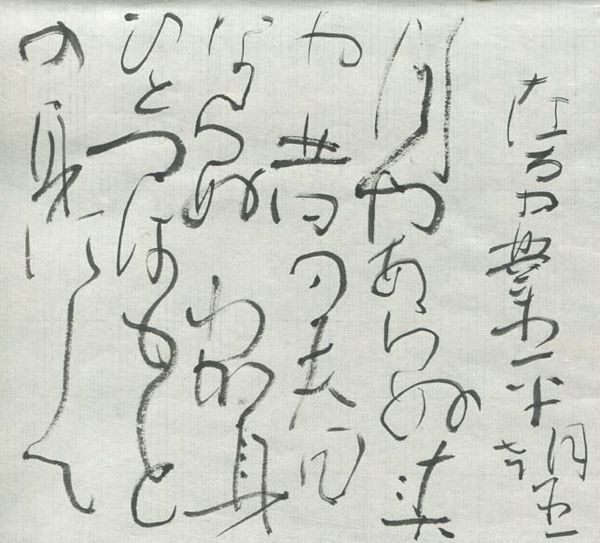 在原業平朝臣
月やあらぬ春
や昔の春
ならぬわか身
ひとつはもと
の身にして